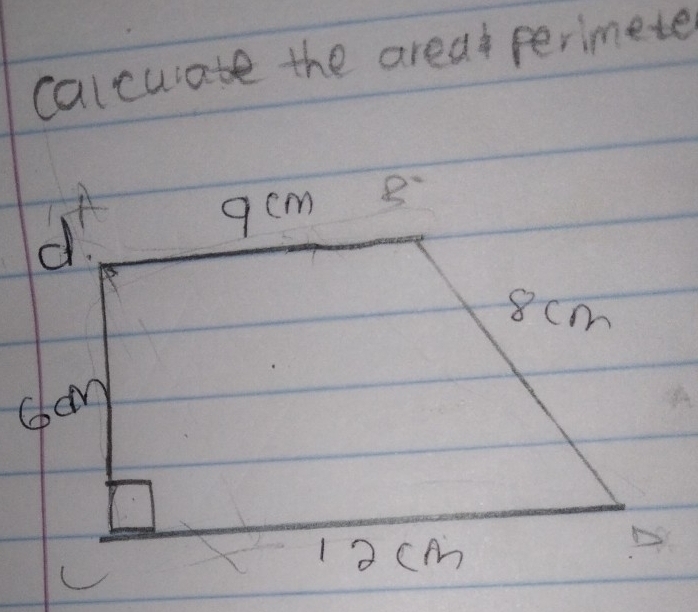 calculate the area & perimete
A
9cm
B
d.
8cm
6cm
12cm
C
D